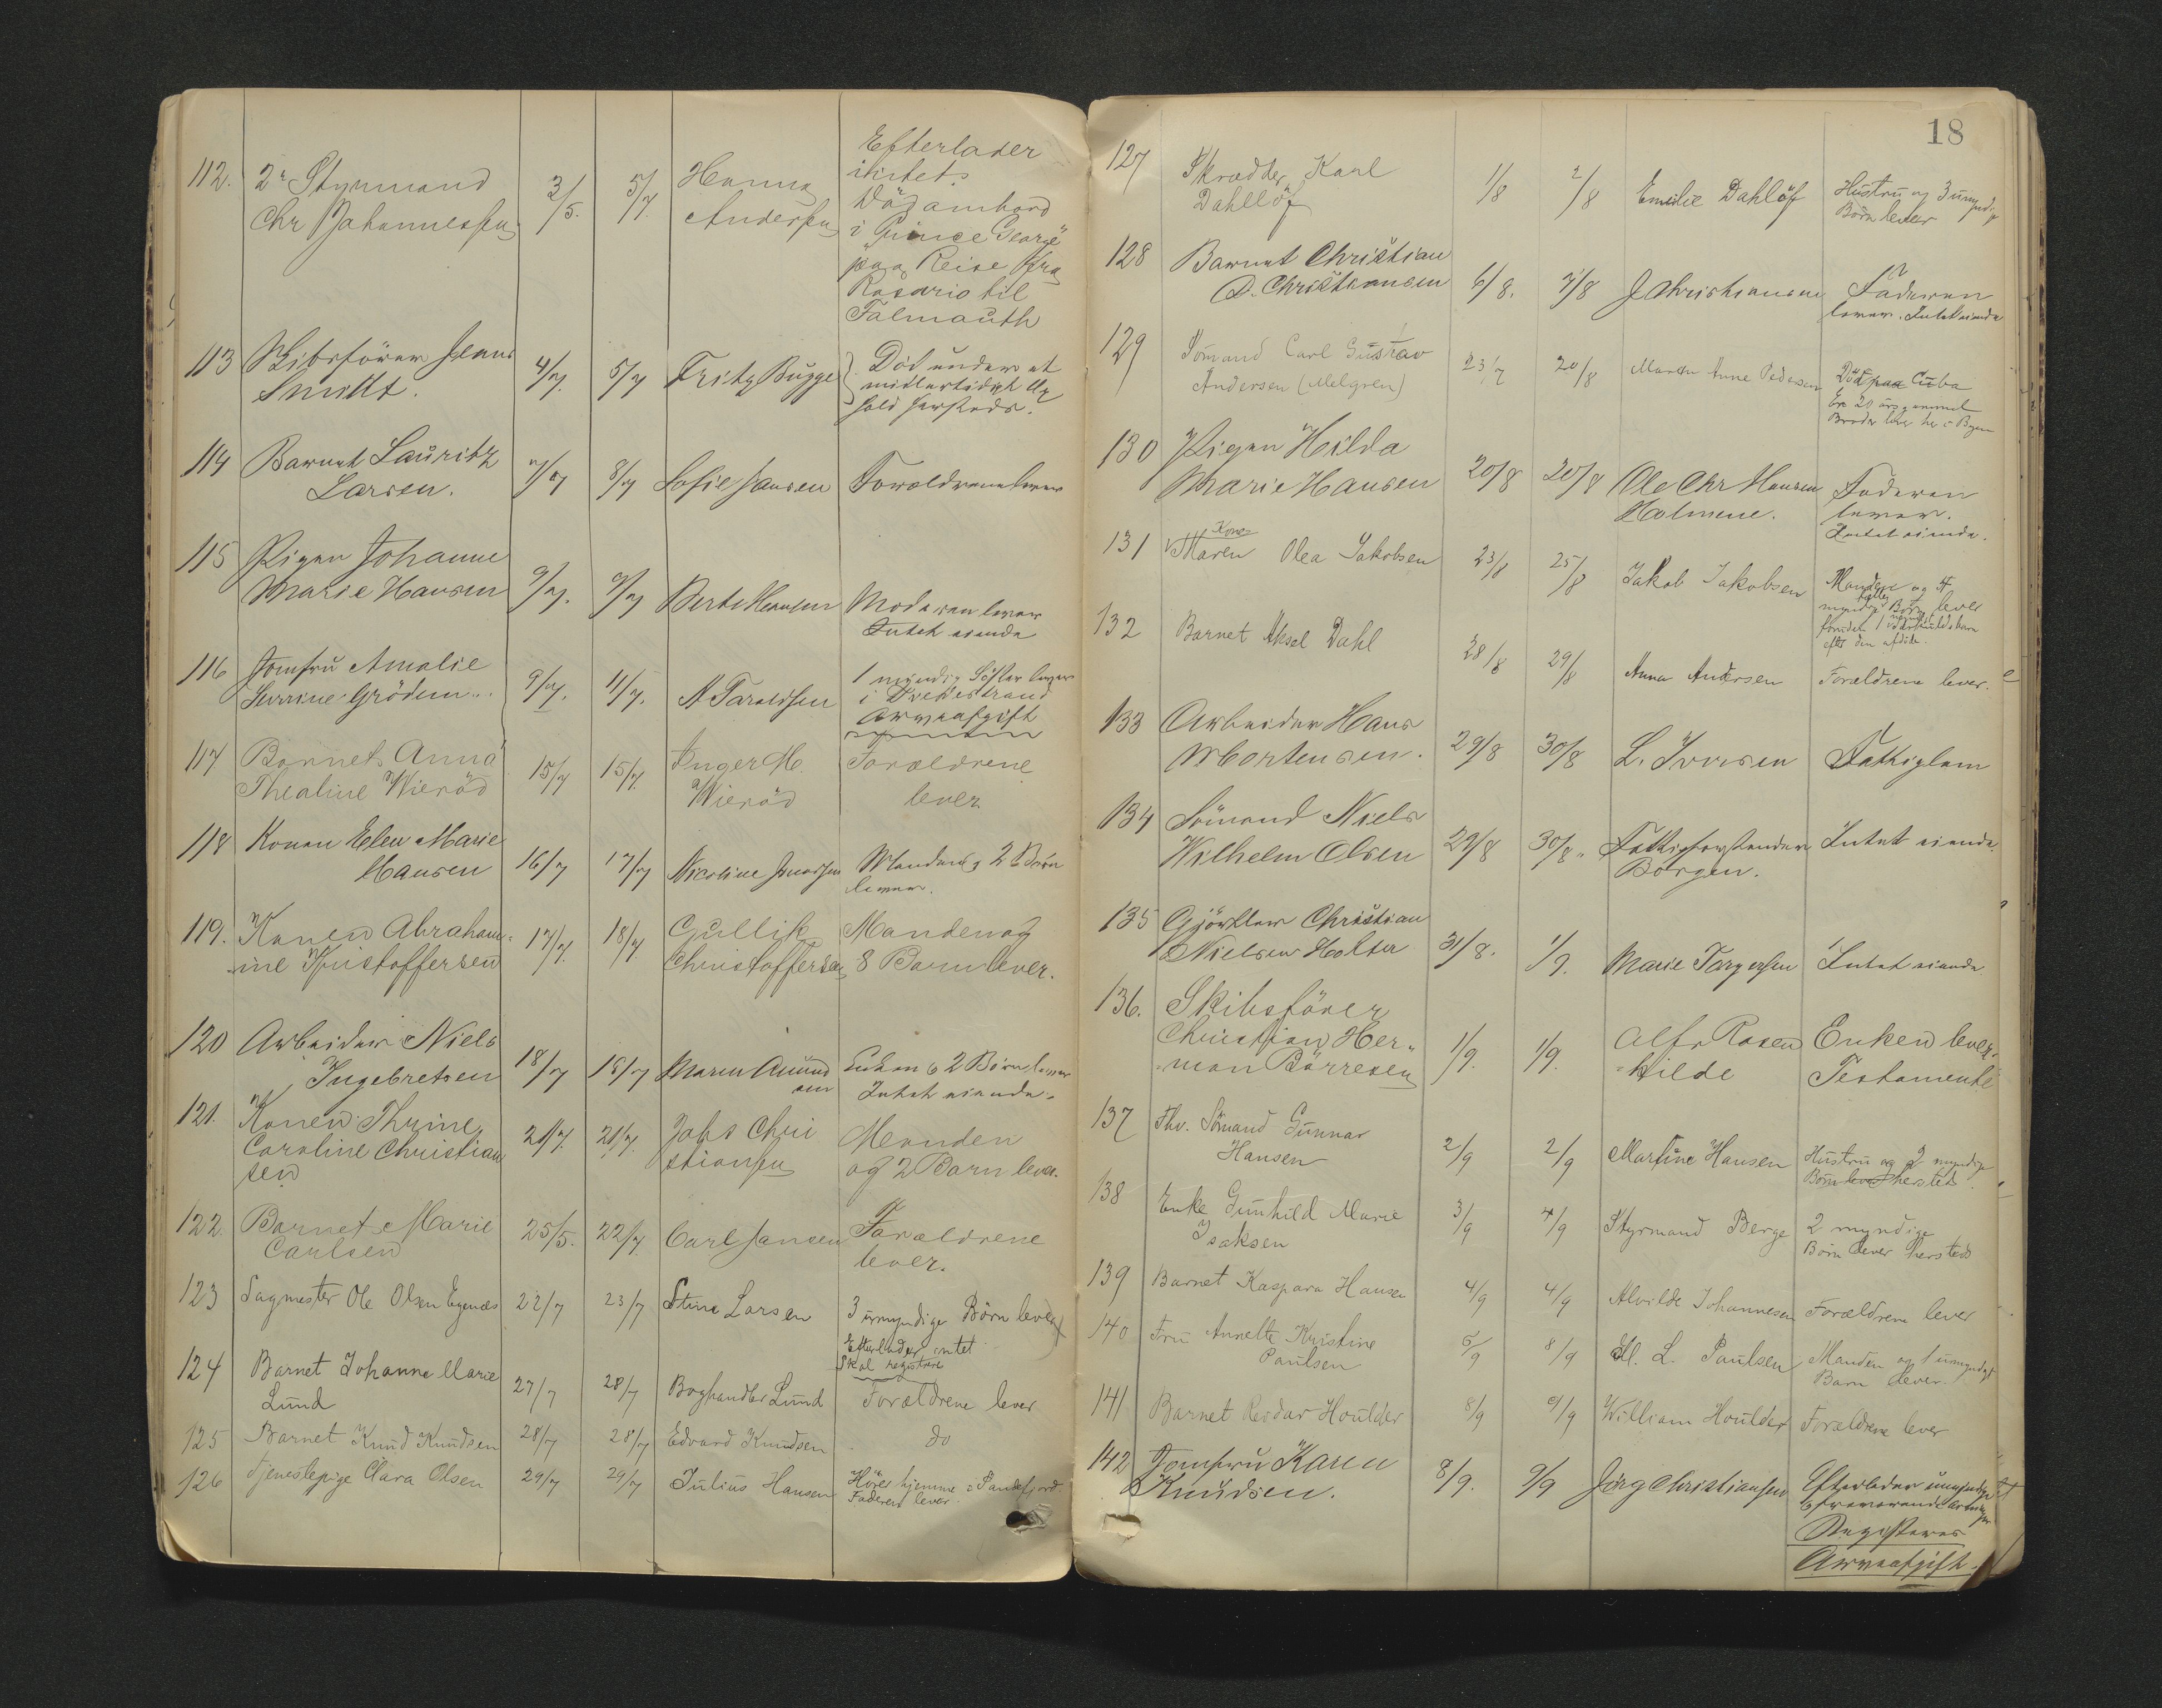 112. 2n Styrmand
Chr Johannessen
3/5. 5/7.
Hanna
Andersen
Efterlader
intet.
Död ombord
i "Prince George"
paa Reise fra
Rosario til
Falmouth
113 Skibsförer Hans
Smith.
4/7. 5/7 Fritz Bugge
Död under et
midlertidigt Op
hold hersteds.
114 Barnet Lauritz
Larsen.
7/7 8/7 Sofie Hansen Forældrene lever
115 Pigen Johanne
Marie Hansen
9/7. 9/7 Berte Hansen Moderen lever
Intet eiende
116 Jomfru Amalie
Severine Grödem
9/7. 11/7. N Taraldsen
1 myndig Söster lever
i Tvedestrand
Arveafgift
117 Barnet Anna
Thealine Wieröd
15/7 15/7. Inger M.
Wieröd
Forældrene
lever
118 Konen Elen Marie
Hansen
16/7 17/7 Nicoline
Manden og 2 Börn
lever.
119. Konen Abraham-
ine Kristoffersen
17/7. 18/7. Gullik
Christoffersen
Manden og
8 Børn lever.
120 Arbeider Niels
Ingebretsen
18/7 18/7 Maren Amund
sen
Enken & 2 Børn lever
Intet eiende.
121. Konen Thrine
Caroline Christian
sen
20/7. 21/7. Johs Chri
stiansen
Manden
og 2 Børn lever.
122. Barnet Marie
Carlsen
25/5. 22/7 Carl Hansen Forældrene
lever.
123 Sagmester Ole Olsen Egenæs 22/7 23/7 Stina Larsen 3 umyndige Börn lever
Efterlader intet
Skal registrere
124 Barnet Johanne Marie
Lund
27/7 28/7 Boghandler Lund Forældrene lever
125 Barnet Knud Knudsen 28/7 28/7 Edvard Knudsen do
126 Tjenestepige Clara Olsen 29/7 29/7 Julius Hansen Hörer hjemme i Sandefjord.
Faderen lever.
18
127 Skrædder Karl
Dahllöf
1/8 2/8 Emilie Dahlöf Hustru og 3 umyndige
Börn lever
128 Barnet Christian
D. Christensen
6/8. 7/8 J Christiansen Faderen
lever. Intet eiende
129 Sömand Carl Gustav
Andersen (Melgren)
23/7 20/8 Maren Anne Pedersen Död paa Cuba
Er 20 år gammel
Broder lever her i Byen
130 Pigen Hilda
Marie Hansen
20/8 20/8 Ole Chr Hansen
Holmene.
Faderen
lever.
Intet eiende.
131 Kone
Maren Olea Jakobsen 23/8 25/8 Jakob Jakobsen Manden og 4
fælles
myndige Börn lever
foruden 1 særkuldsbarn
efter den afdöde.
132 Barnet Aksel Dahl 28/8 29/8 Anna Andersen Forældrene lever.
133 Arbeider Hans
Mortensen.
29/8 30/8 L. Iversen Fattiglem
134 Sömand Niels
Wilhelm Olsen
29/8 30/8. Fattigforstander
Borgen.
Intet eiende.
135 Gjörtler Christian
Nielsen Holter
31/8. 1/9. Marie Torgersen Intet eiende
136. Skibsförer
Christian Her-
man Börresen
1/9. 1/9. Alfr Rosen
kilde
Enken lever.
Testamente
137 Fhv. Sömand Gunnar
Hansen
2/9 2/9 Martine Hansen Hustru og 2 myndige
Börn lever hersteds.
138 Enke Gunhild Marie
Isaksen
3/9 4/9 Styrmand Berge 2 myndige
Börn lever hersteds
139 Barnet Kaspara Hansen 4/9 4/9 Alvilde Johannesen Forældrene lever
140 Fru Annette Kristine
Paulsen
5/9 8/9 M. L. Paulsen Manden og 1 umyndigt
Barn lever.
141 Barnet Reidar Houlder 8/9 9/9 William Houlder Forældrene lever
142 Jomfru Karen
Knudsen.
8/9. 9/9 Jörg Christiansen Efterlader umyndige
& fraværende Arvinger
Registreres
Arveafgift.